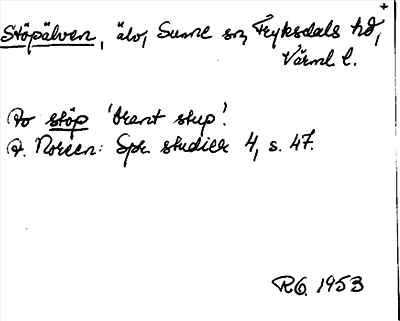 +
Stöpälven, älv, Sunne sn, Fryksdals hd,
Värml l.
Av stöp 'brant stup'.
A. Noreen: Spr. studier 4, s. 47.
RG. 1953